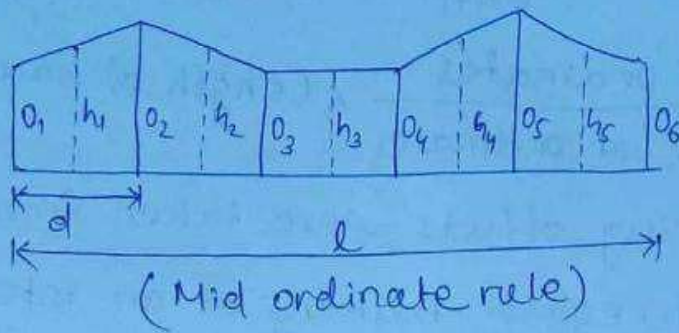 O1 h1 O2 h2 O3 h3 O4 h4 O5 h5 O6
d
l
(Mid ordinate rule)